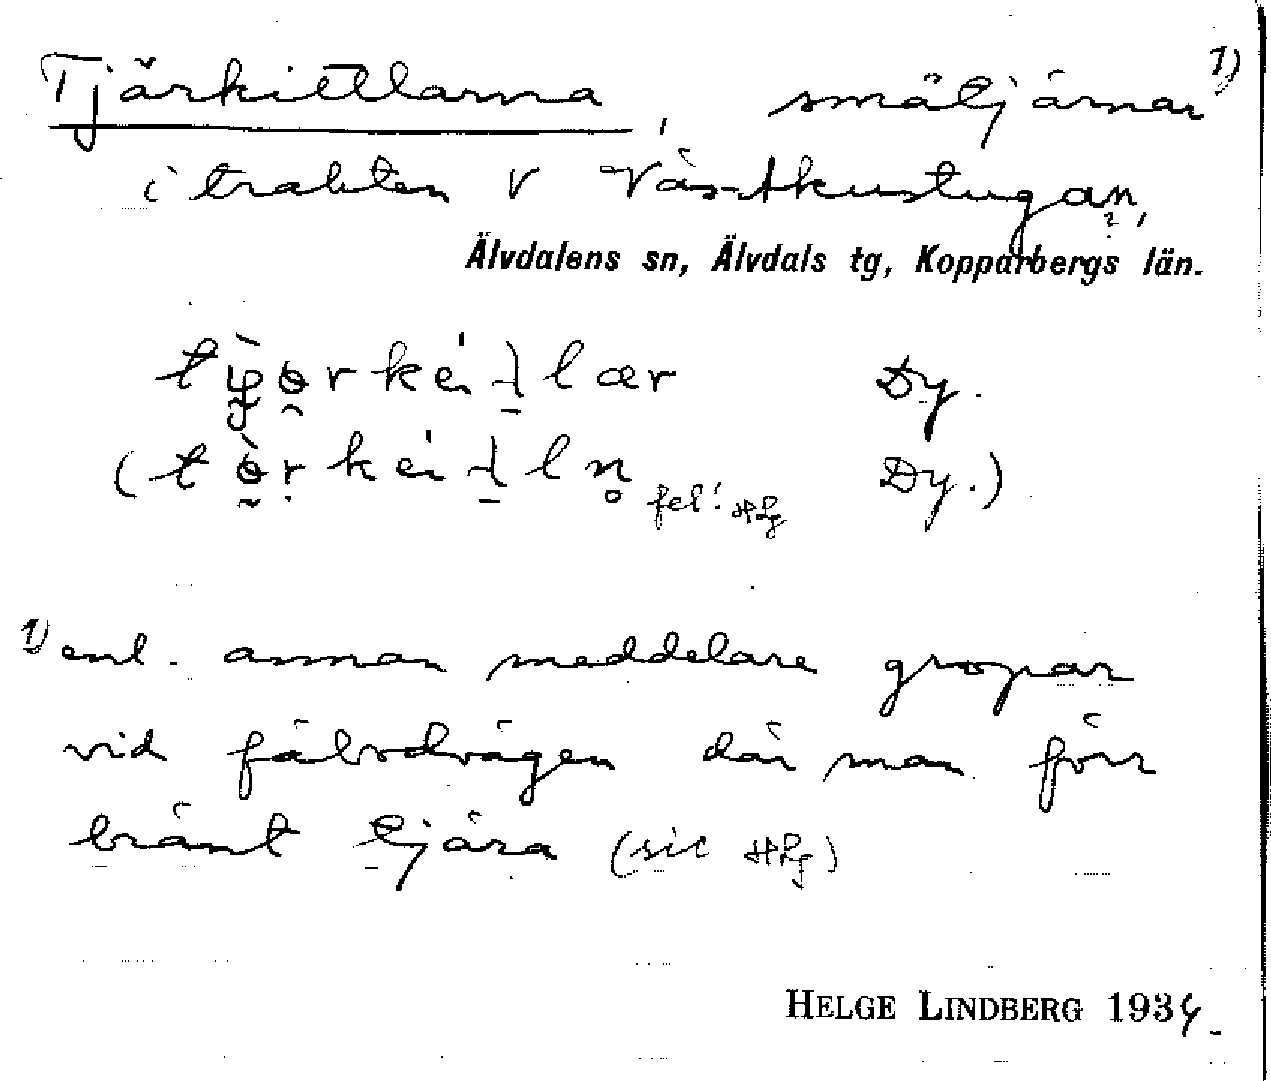 Tjärkittlarna, småtjärnar 1)
i trakten V Västkustugan,
?
Älvdalens sn, Älvdals tg, Kopparbergs län.
Dy.
fel! HLg Dy.)
1) enl. annan meddelare gropar
vid fäbodvägen där man förr
bränt tjära (sic HLg)
HELGE LINDBERG 1934